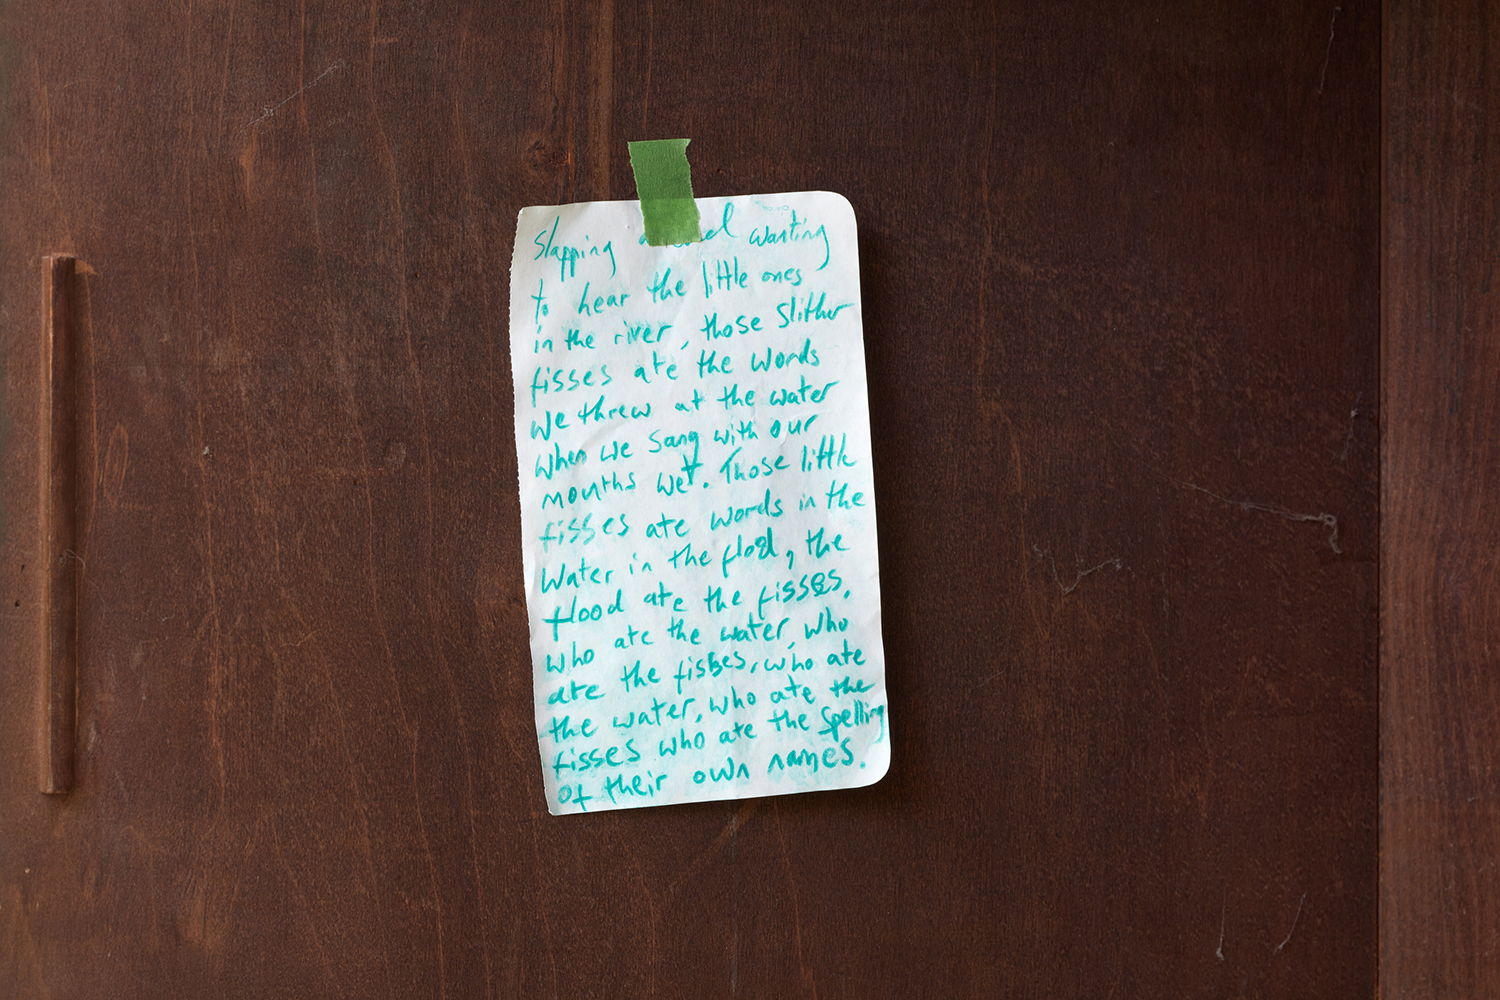 Slapping wanting
to hear the little ones
in the river, those slither
fisses ate the words
we threw at the water
when we sang with our
mouths wet. Those little
fisses ate words in the
water in the flood, the
flood ate the fisses,
who ate the water, who
ate the fisses, who ate
the water, who ate the
fisses who ate the spelling
of their own names.